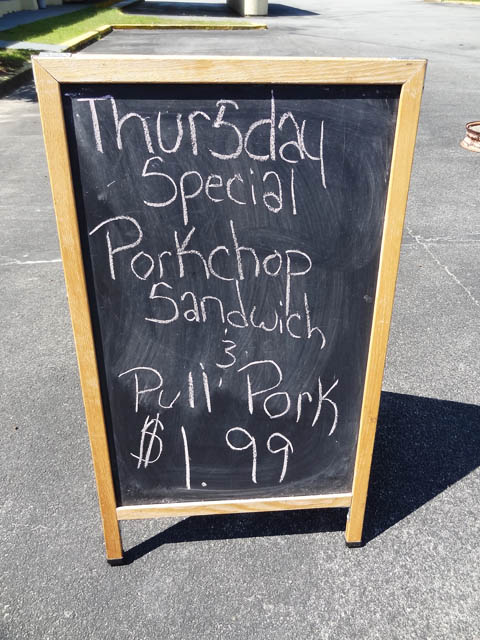 Thursday
Special
Porkchop
Sandwich
&
Pull Pork
$1.99